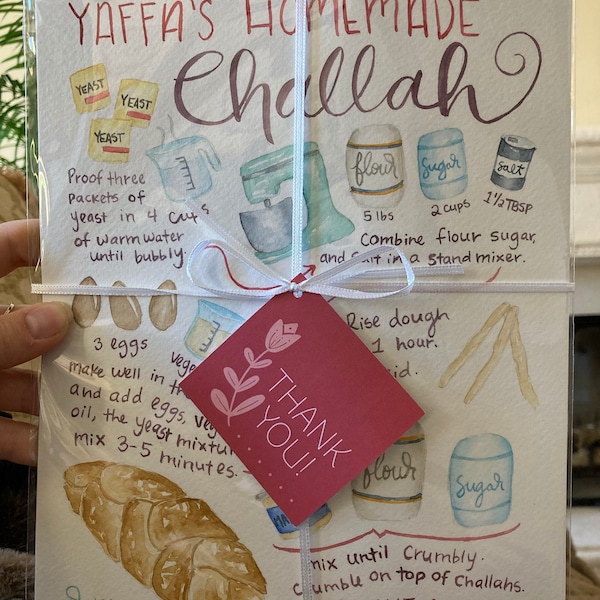 YAFFA'S HOMEMADE
Challah
YEAST
YEAST
YEAST
flour
Sugar
Salt
5 lbs
2 cups
1 1/2 TBSP
Proof three
packets of
yeast in 4 cups
of warm water
until bubbly.
Combine flour sugar,
and salt in a stand mixer.
3 eggs
Rise dough
1 hour.
make well in
and add eggs,
oil, the yeast
mix 3-5 minutes.
THANK
YOU!
flour
Sugar
mix until crumbly.
Crumble on top of Challahs.